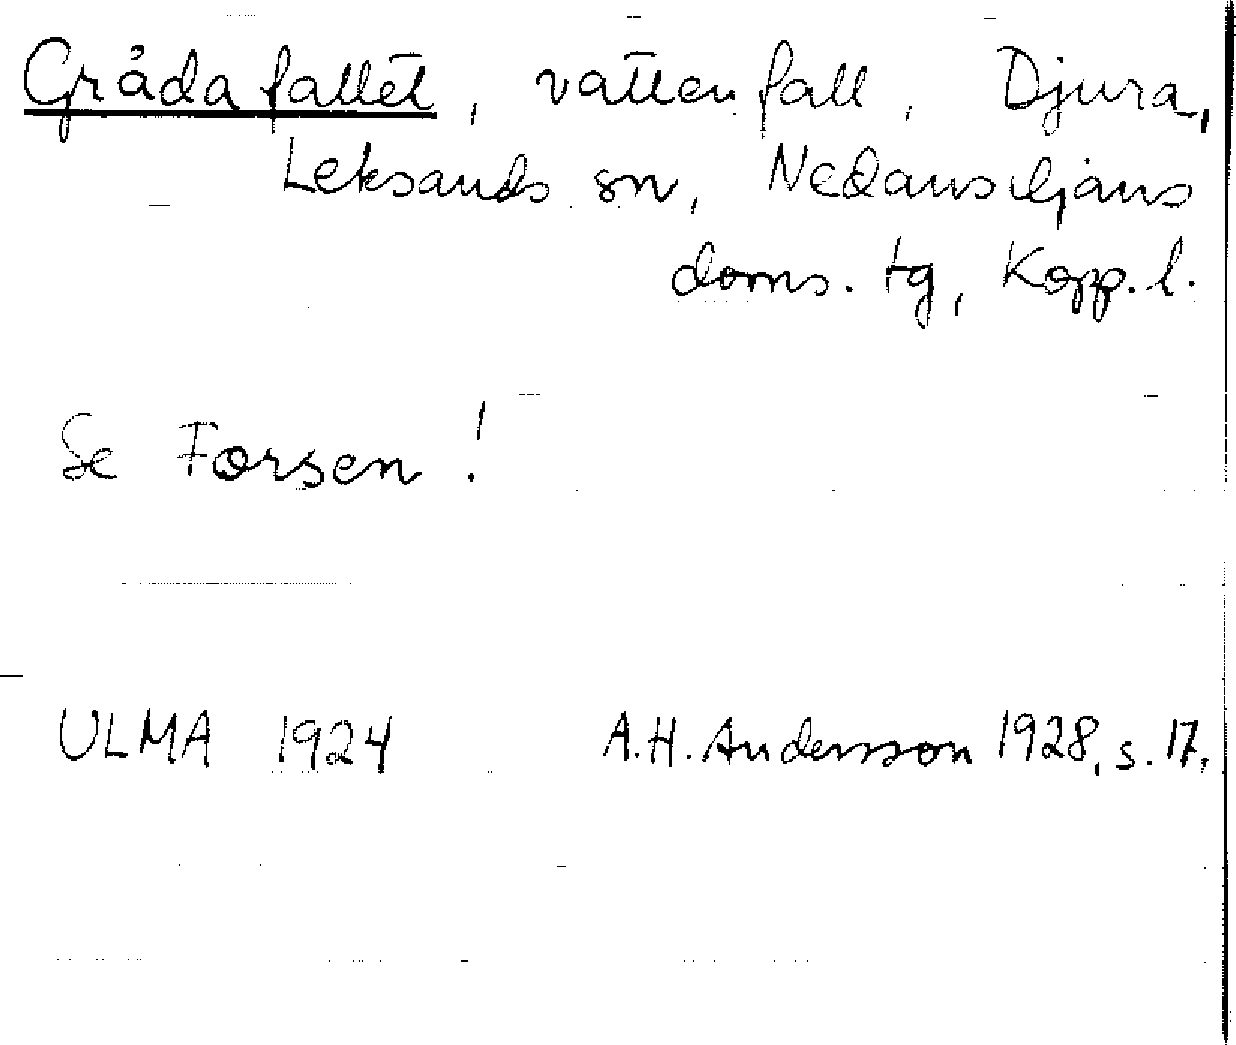 Gråda fallet, vattenfall, Djura,
Leksands sn, Nedansiljans
doms. tg, Kopp. l.
Se Forsen!
ULMA 1924 A.H. Andersson 1928, s. 17.